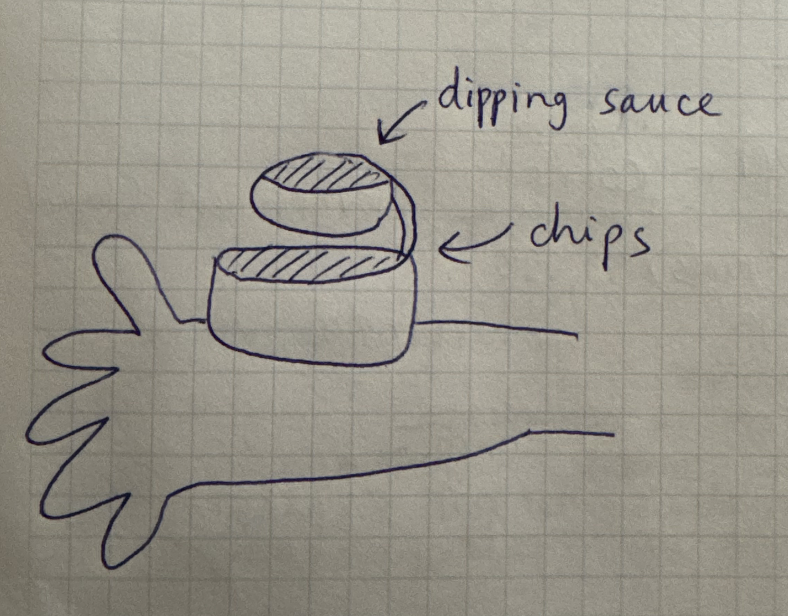 dipping sauce
chips